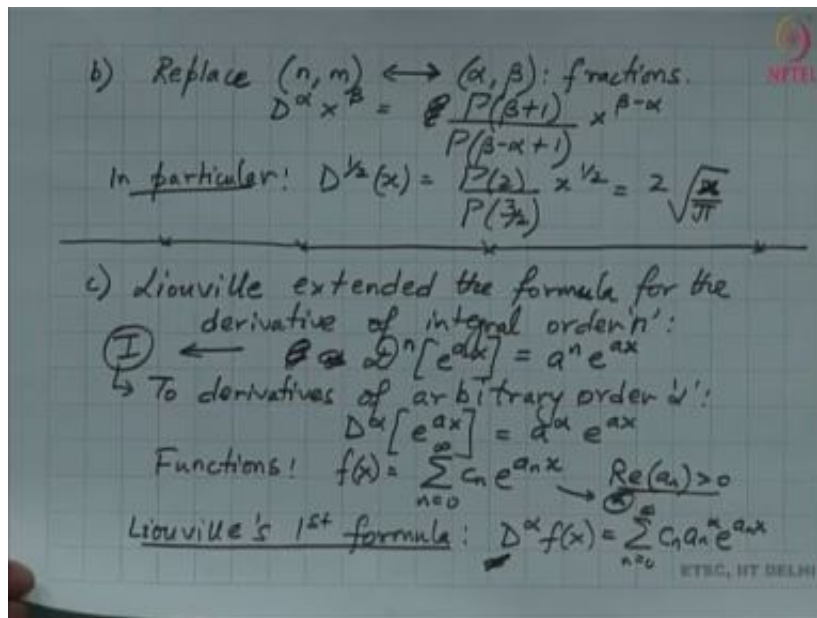 b) Replace (n, m) ↔ (α, β): fractions.
NPTEL
D^α x^β = Γ(β+1)/Γ(β-α+1) x^{β-α}
In particular: D^{1/2}(x) = Γ(2)/Γ(3/2) x^{1/2} = 2√(x/π)
c) Liouville extended the formula for the
derivative of integral order 'n':
I ← D^n[e^{ax}] = a^n e^{ax}
↳ To derivatives of arbitrary order 'α':
D^α[e^{ax}] = a^α e^{ax}
Functions: f(x) = ∑_{n=0}^{∞} c_n e^{a_n x} → Re(a_n) > 0
Liouville's 1st formula: D^α f(x) = ∑_{n=0}^{∞} c_n a_n^α e^{a_n x}
ETSC, IIT DELHI